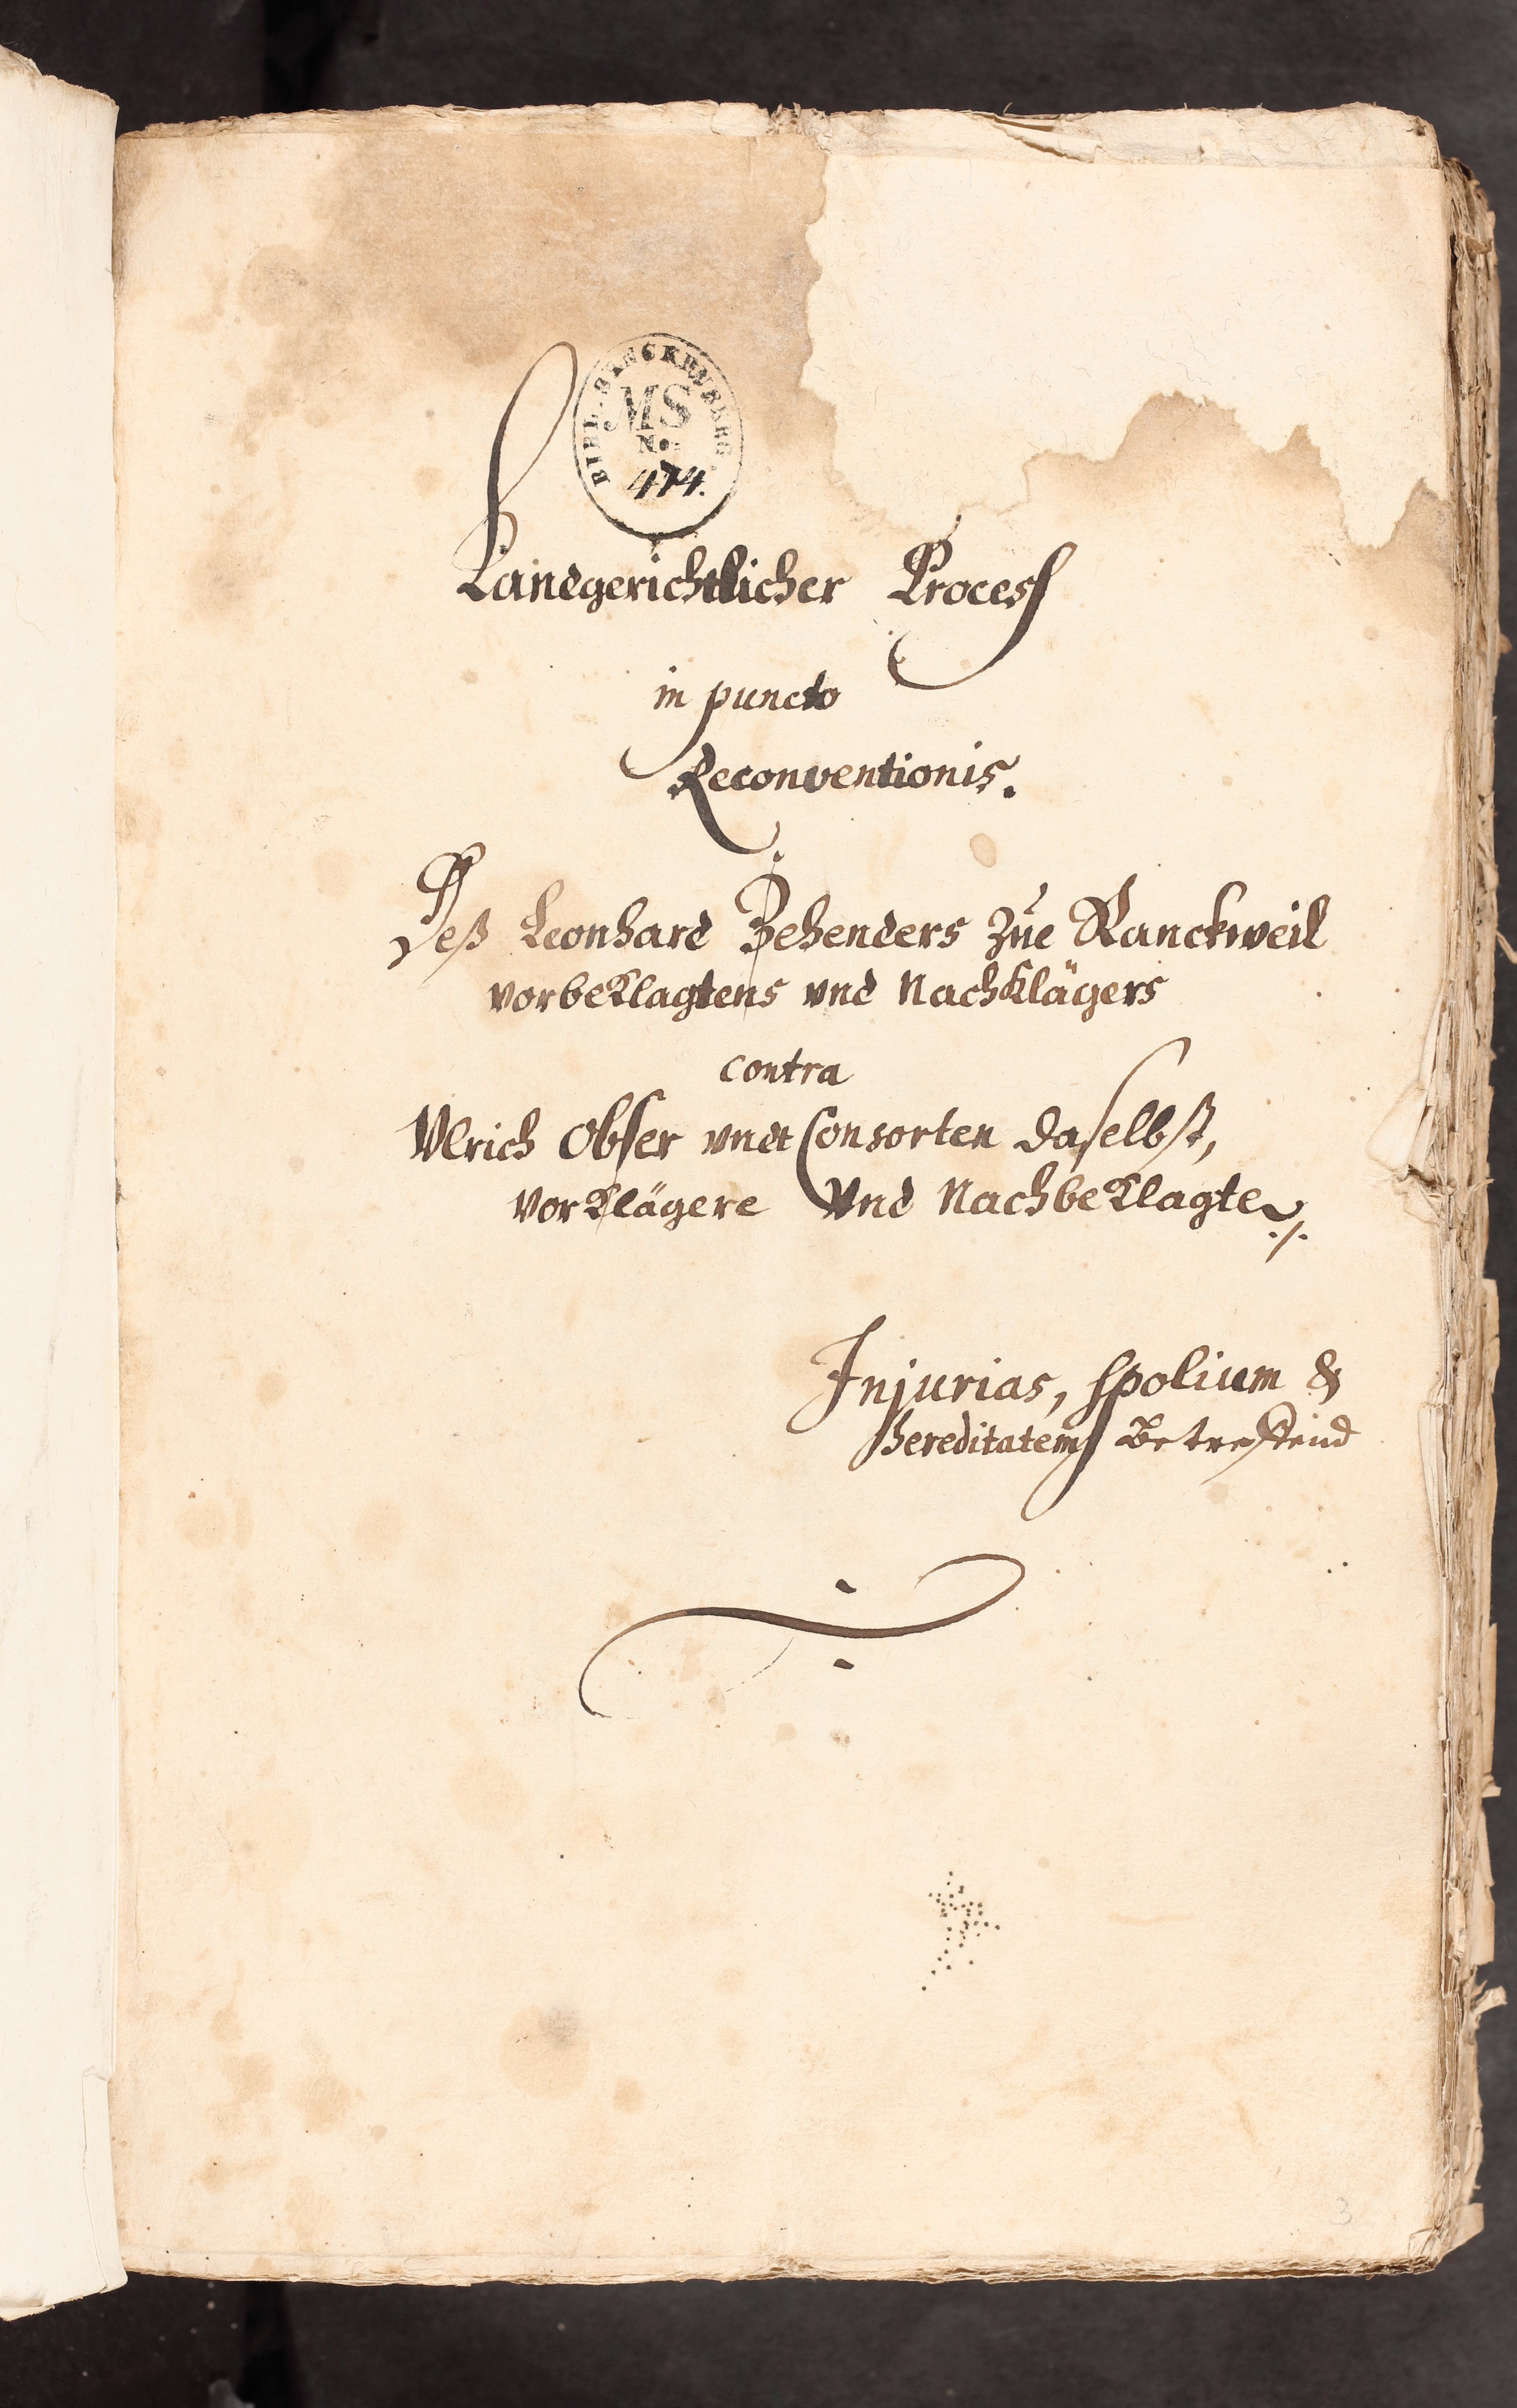 BIBL. SENCKENBERG.
MS
No.
474.
Landgerichtlicher Process
in puncto
Reconventionis.
Deß Leonhard Zehenders zue Ranckweil
vorbeklagtens vnd Nachklägers
contra
Vlrich Obser vndt Consorten daselbst,
vorklägere Vnd Nachbeklagte ./.
Injurias, spolium &
hereditatem Betreffend
3